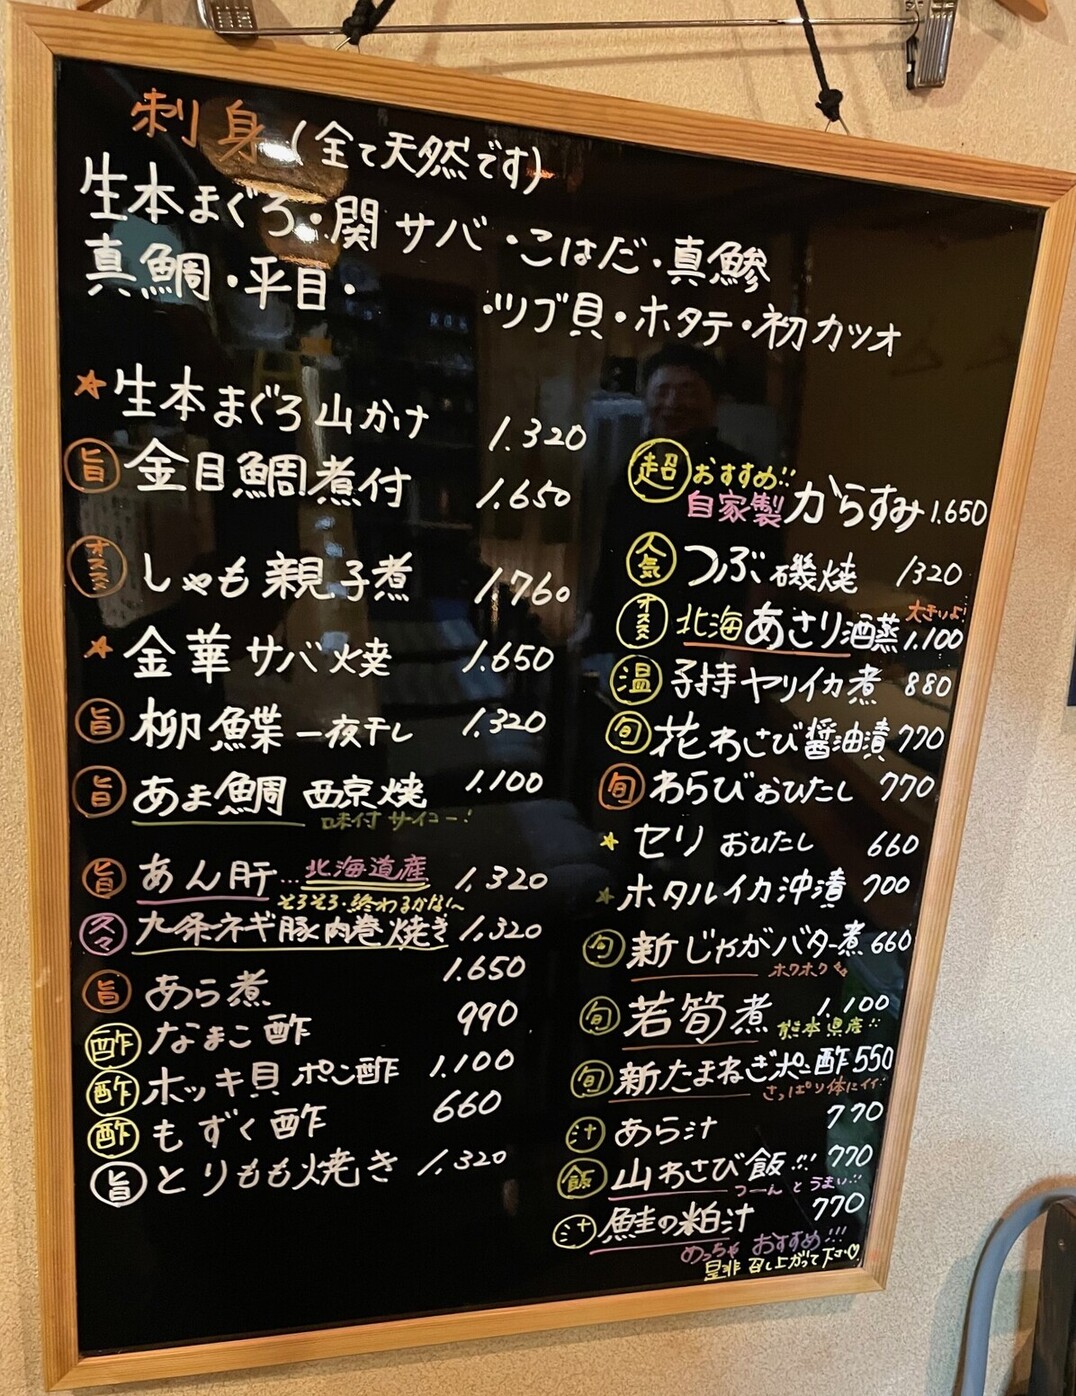 刺身(全て天然です)
生本まぐろ・関サバ・こはだ・真鯵
真鯛・平目・ ・ツブ貝・ホタテ・初カツオ
☆生本まぐろ山かけ 1.320
旨 金目鯛煮付 1.650
オススメ しゃも親子煮 1.760
☆金華サバ焼 1.650
旨 柳鰈一夜干し 1.320
旨 あま鯛 西京焼 1.100
味付サイコー!
旨 あん肝…北海道産 1.320
そろそろ終わるかな〜
久々 九条ネギ豚肉巻焼き 1.320
旨 あら煮 1.650
酢 なまこ酢 990
酢 ホッキ貝ポン酢 1.100
酢 もずく酢 660
旨 とりもも焼き 1.320
超おすすめ!!
自家製からすみ 1.650
人気 つぶ磯焼 1320
大きいよ!
オススメ 北海あさり酒蒸 1.100
温 子持ヤリイカ煮 880
旬 花わさび醤油漬 770
旬 わらびおひたし 770
☆セリおひたし 660
☆ホタルイカ沖漬 700
旬 新じゃがバター煮 660
ホクホク
旬 若筍煮 1.100
熊本県産!!
旬 新たまねぎポン酢 550
さっぱり体にイイ
汁 あら汁 770
飯 山わさび飯!!! 770
つーんとうまい!!
汁 鮭の粕汁 770
めっちゃおすすめ!!!
是非召し上がって下さい♡